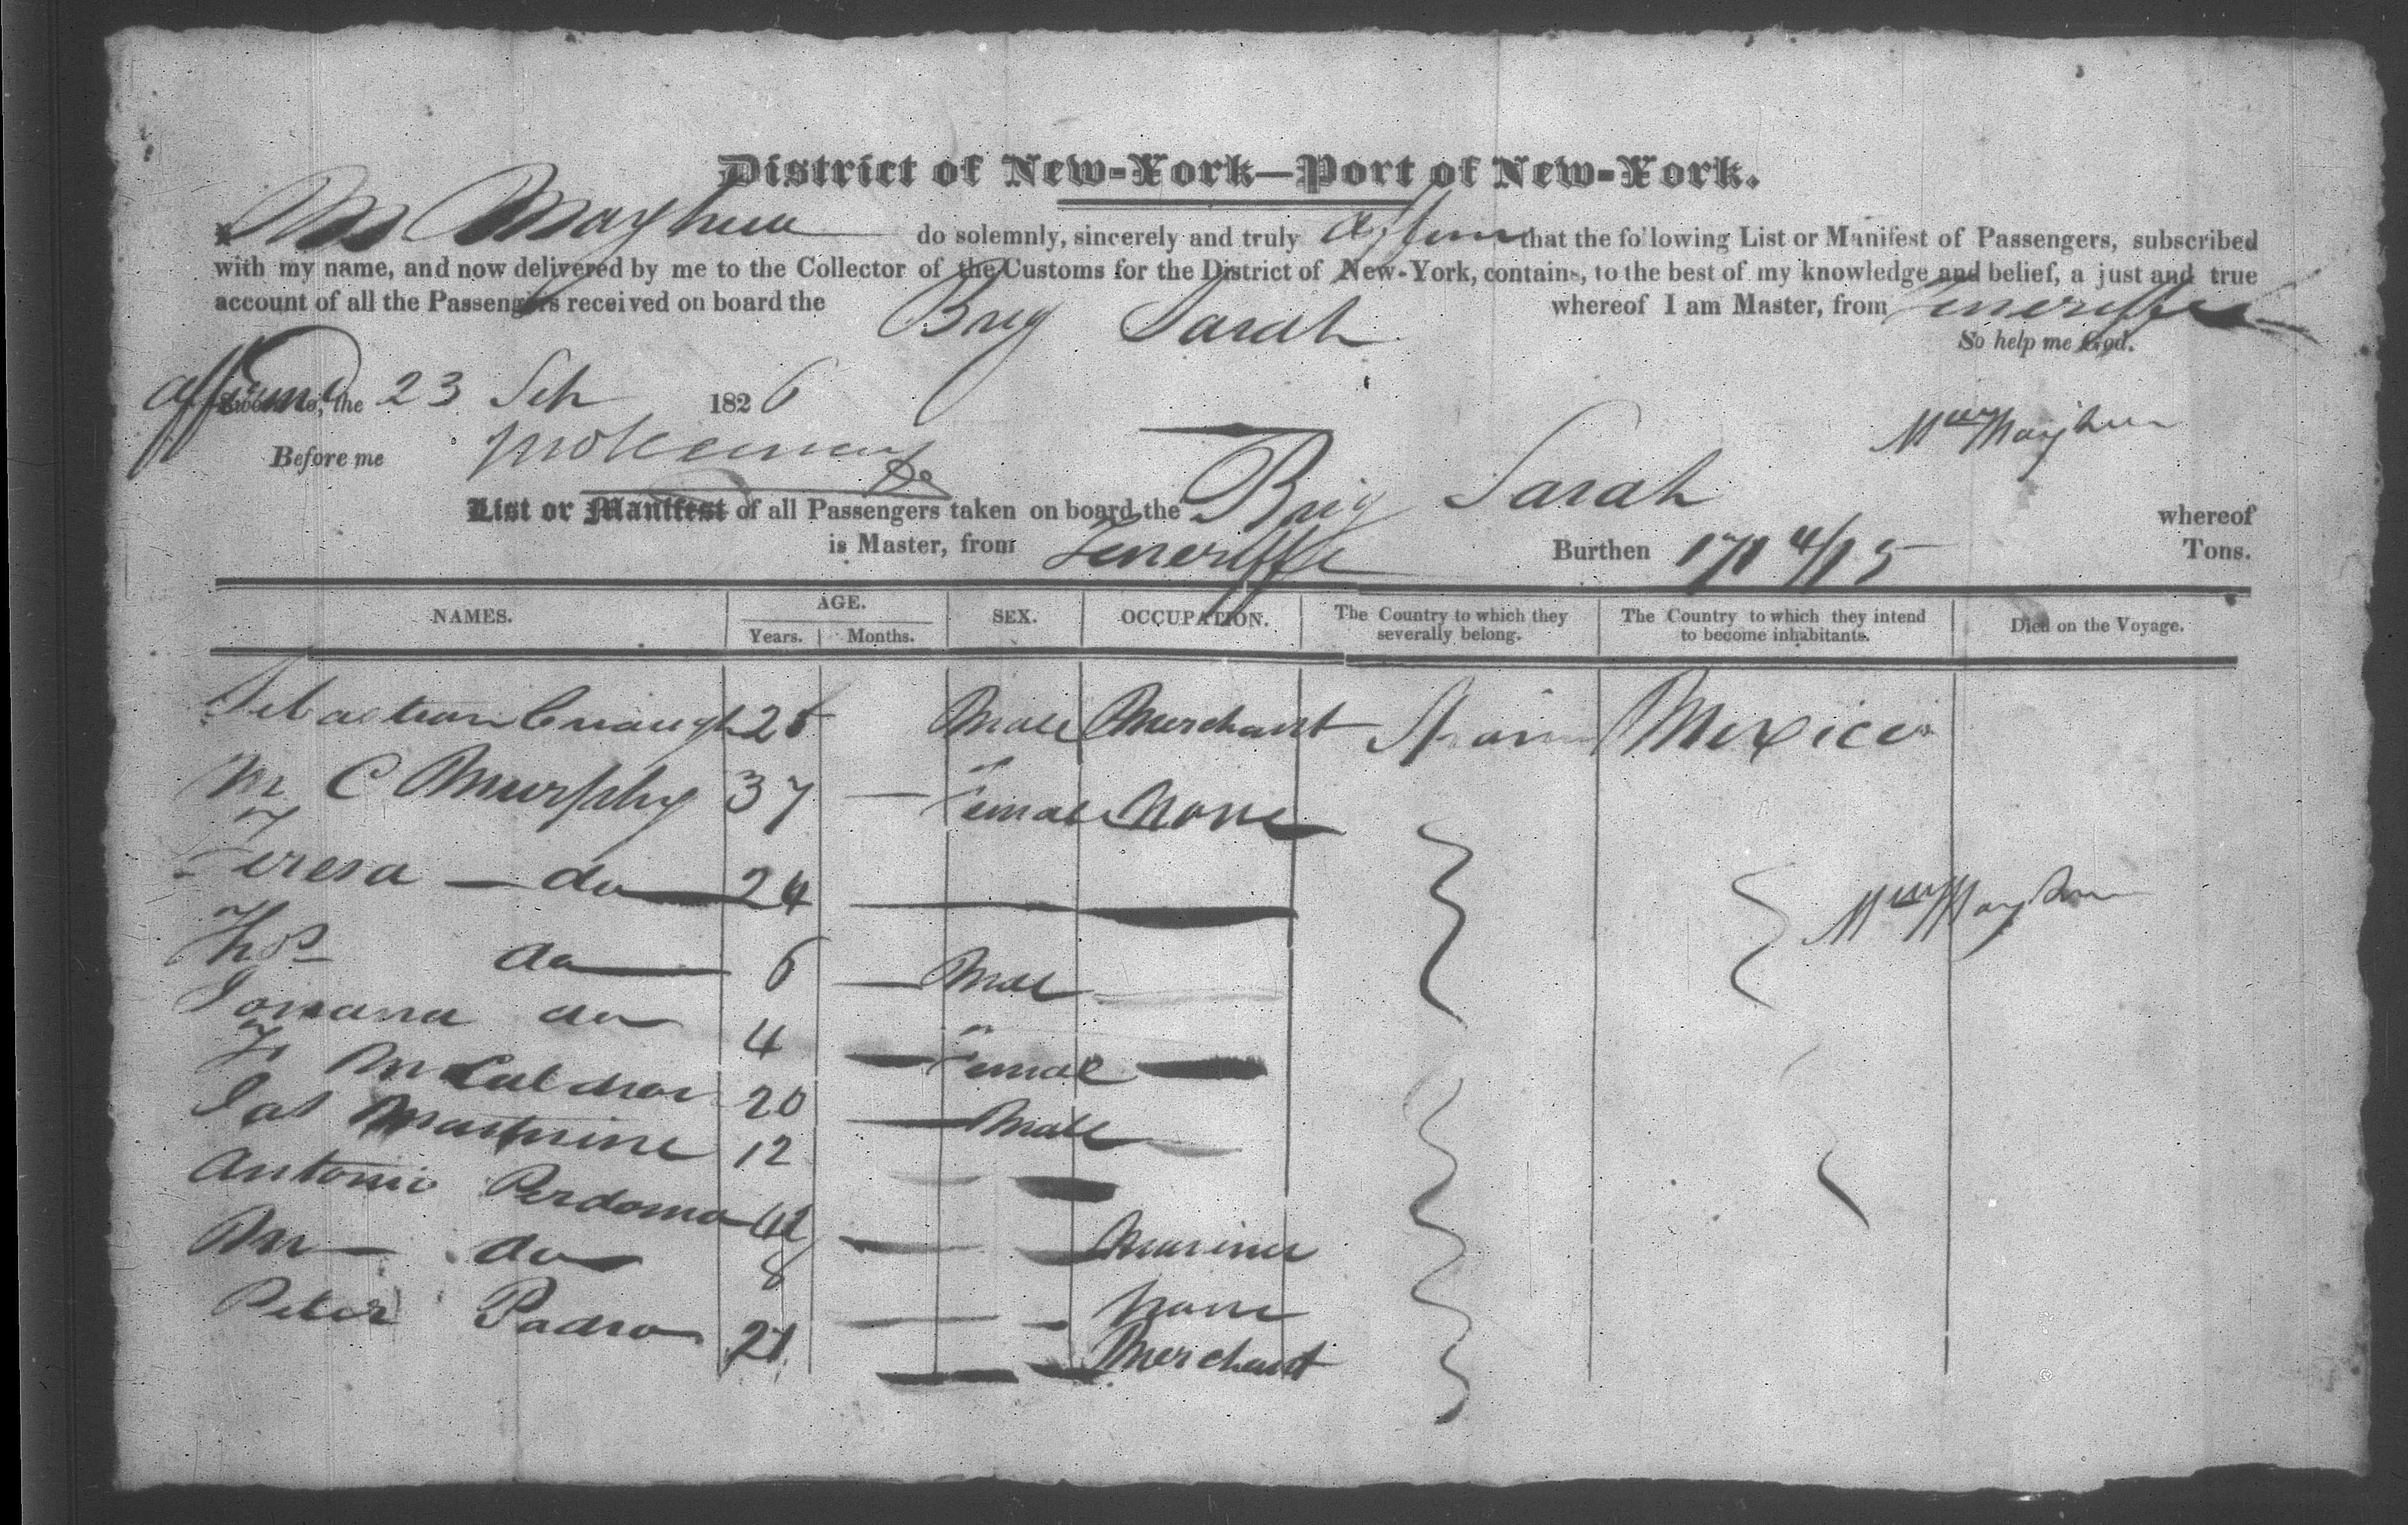 District of New-York—Port of New-York.
Wm Mayhew do solemnly, sincerely and truly affirm that the following List or Manifest of Passengers, subscribed
with my name, and now delivered by me to the Collector of the Customs for the District of New-York, contains, to the best of my knowledge and belief, a just and true
account of all the Passengers received on board the Brig Sarah whereof I am Master, from Teneriffe
So help me God.
affirmd to, the 23 1826
Wm Mayhew
Before me
List or Manifest of all Passengers taken on board the Brig Sarah whereof
is Master, from Teneriffe Burthen 171 4/15 Tons.
NAMES. AGE. SEX. OCCUPATION. The Country to which they severally belong. The Country to which they intend to become inhabitants. Died on the Voyage.
Years. Months.
Sebastian Male Merchant Spain Mexico
M C Murphy 37 Female None
Teresa do 24
Thos do 6 Male
Jomana do 4 Female
20 Male
12
Antonio Perdomo 42 Mariner
Wm do 8 None
Peter Padron 21 Merchant
Wm Mayhew